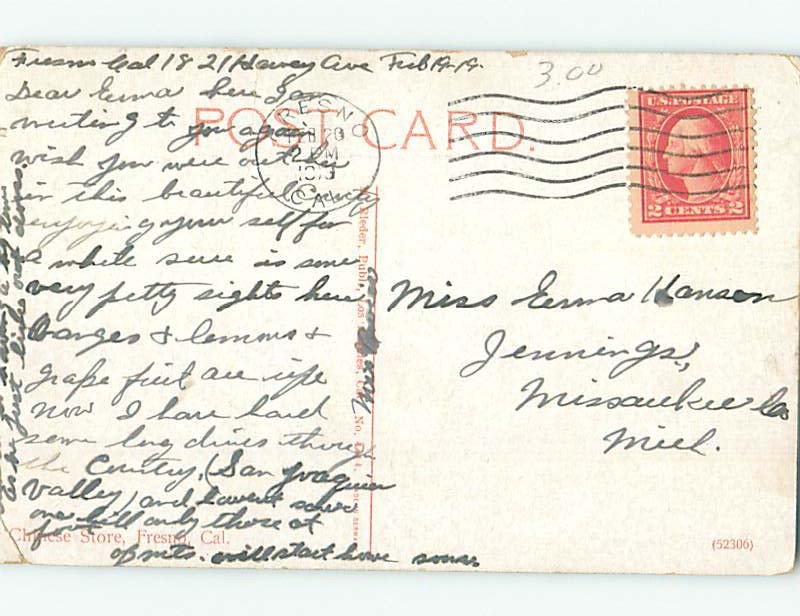 Fresno Cal 1821 Harvey Ave Feb 19-19.
3.00
Dear Erma here I am
writing to you again
wish you were out here
in this beautiful
enjoying your self for
a while sure is some
very petty sights here
Oranges & lemons &
grape fruit are ripe
now I have had
some long drives through
the Country, (San Joaquin
Valley) and havent saw
one hill only those at
foot
of mts. will start home soon.
POST CARD.
FRESNO
FEB 20
2 PM
1919
CAL
U.S. POSTAGE
2 CENTS 2
Miss Erma Hanson
Jennings,
Missaukee Co
Mich.
Rieder, Publ., Los Angeles, Cal. No.
Chinese Store, Fresno, Cal.
(52306)